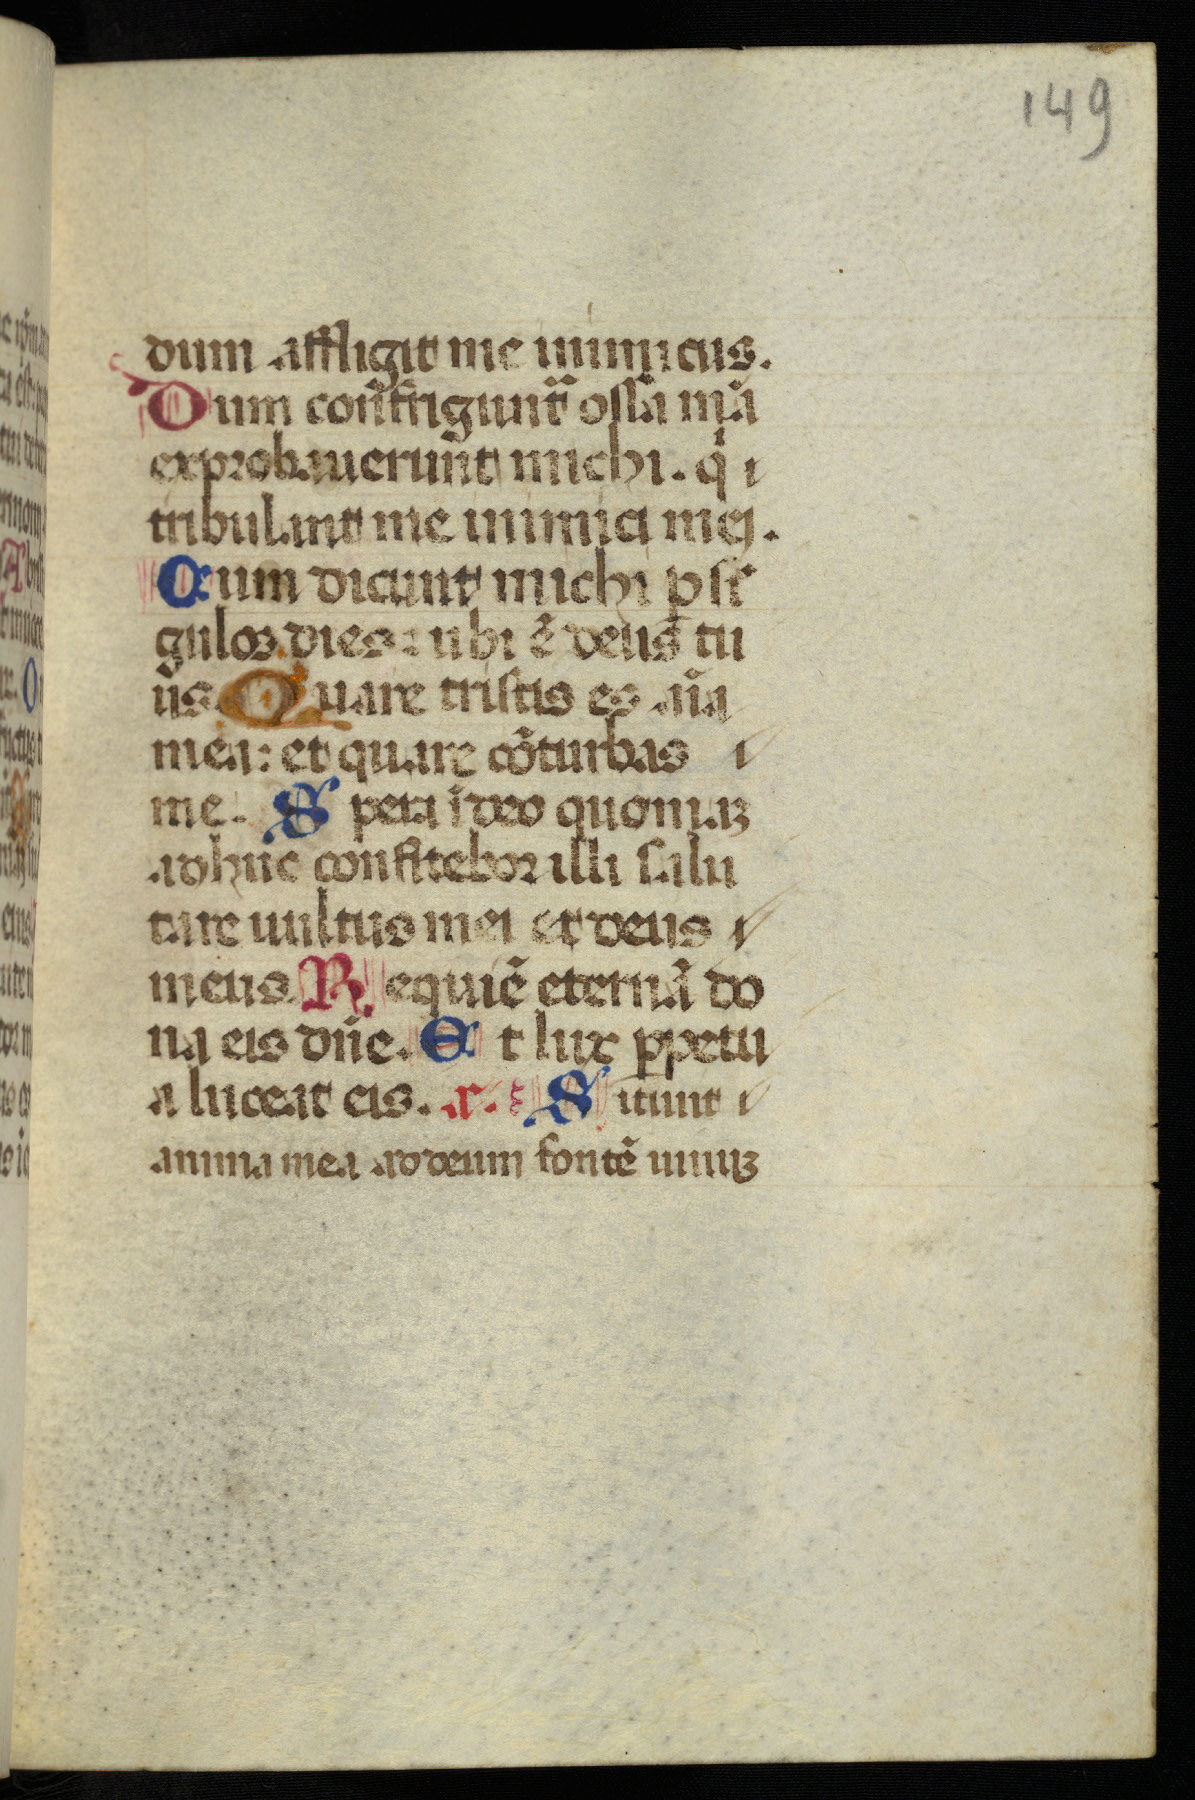 149
dum affligit me inimicus.
Dum confrigunt̃ ossã mã
exprobauerunt michi. qͥ
tribulant me inimici mei.
Cum dicunt michi p sĩ
gulos dies: ubi ẽ deus tu
us. Quare tristis es aĩa
mea: et quare cõturbas
me. Spera ĩ deo quoniaȝ
adhuc confitebor illi salu
tare uultus mei et deus
meus. Requiẽ eternã do
na eis dñe. Et lux ꝑpetu
a luceat eis. a. Sitiuit
anima mea ad deum fontẽ uiuuȝ